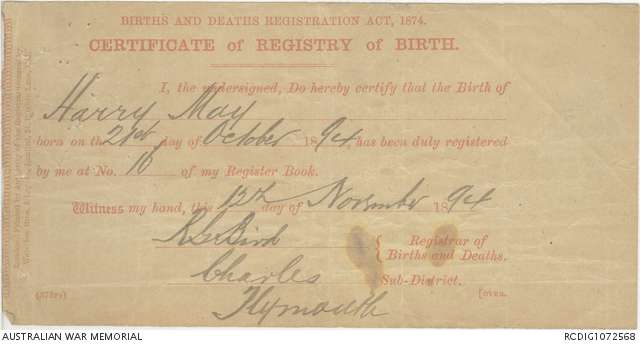 BIRTHS AND DEATHS REGISTRATION ACT, 1874.
CERTIFICATE of REGISTRY of BIRTH.
I, the undersigned, Do hereby certify that the Birth of
Harry May
born on the 21st day of October 1894, has been duly registered
by me at No. 16 of my Register Book.
Witness my hand, this 12th day of November 1894
Bird
Registrar of
Births and Deaths.
Charles Sub-District.
[OVER.
Plymouth
AUSTRALIAN WAR MEMORIAL
RCDIG1072568